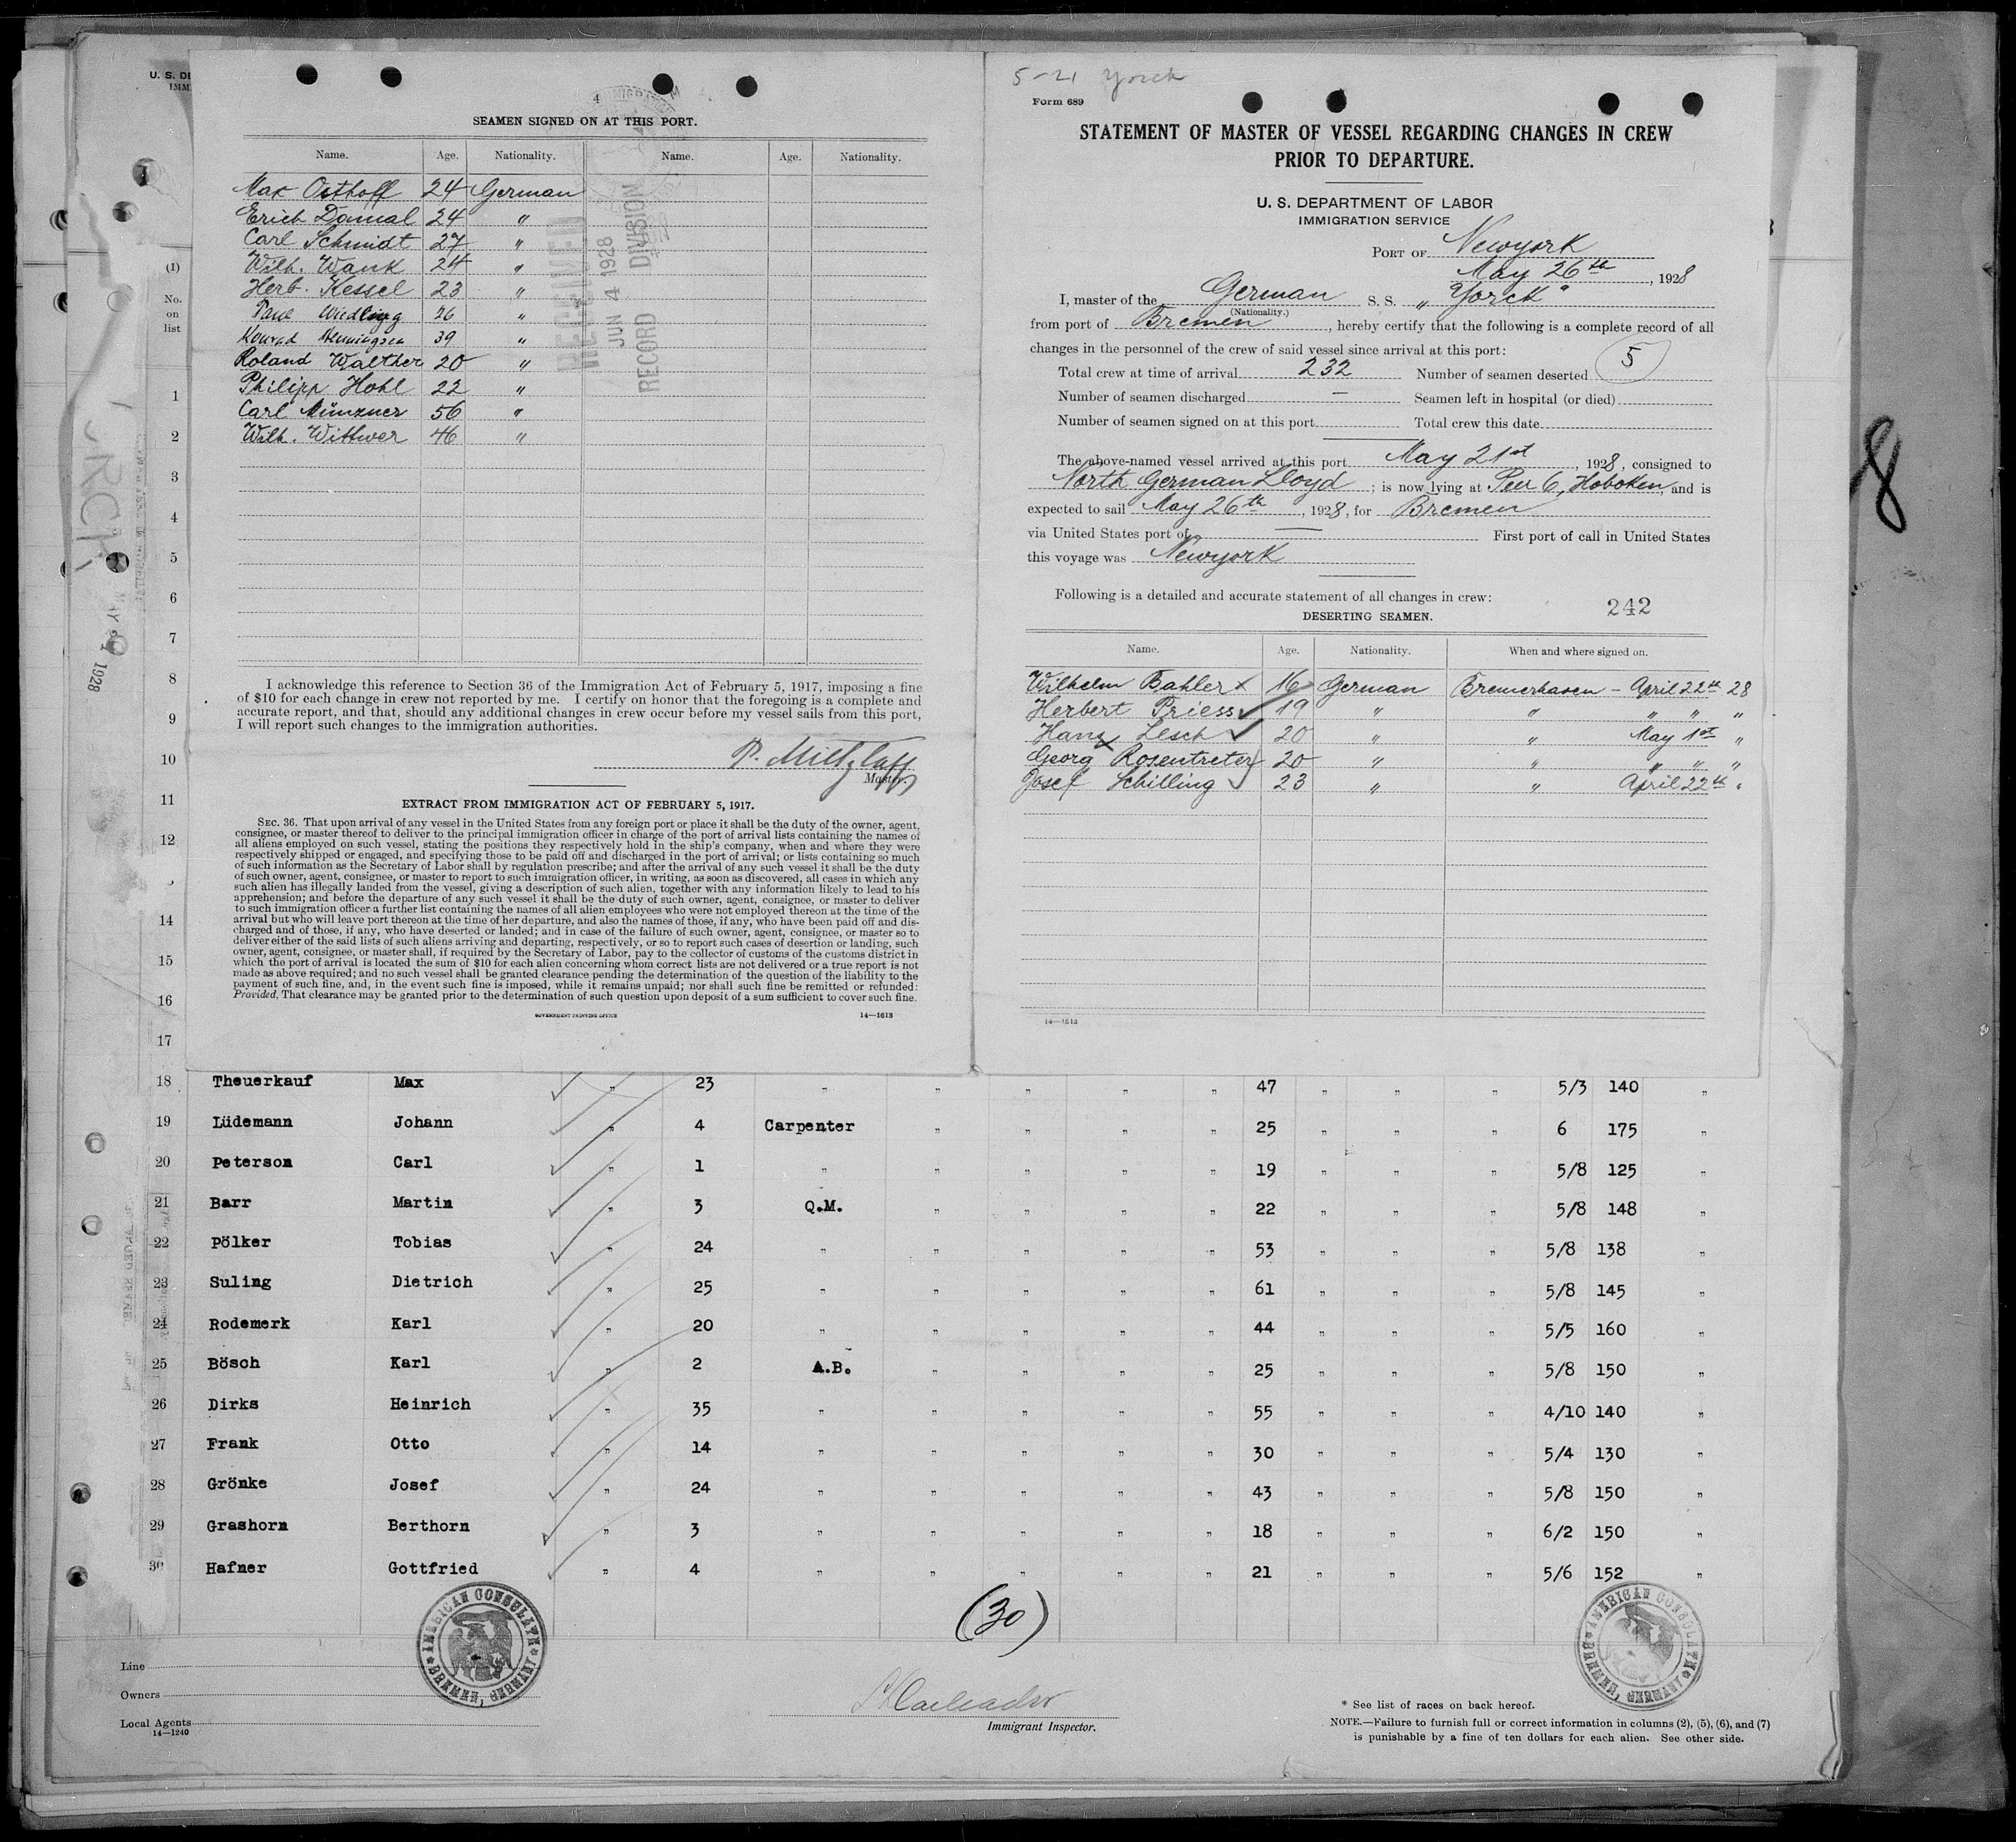 4
SEAMEN SIGNED ON AT THIS PORT.
Name. Age. Nationality. Name. Age. Nationality.
Max Osthoff 24 German
Erich Domal 24 "
Carl Schmidt 27 "
Wilh. Wank 24 "
Herb. Kessel 23 "
Paul Wiedling 26 "
Konrad Henningsen 39 "
Roland Walther 20 "
Philipp Hohl 22 "
Carl Münzner 56 "
Wilh. Wittwer 46 "
RECEIVED
JUN 4 1928
RECORD DIVISION
I acknowledge this reference to Section 36 of the Immigration Act of February 5, 1917, imposing a fine
of $10 for each change in crew not reported by me. I certify on honor that the foregoing is a complete and
accurate report, and that, should any additional changes in crew occur before my vessel sails from this port,
I will report such changes to the immigration authorities.
Master.
EXTRACT FROM IMMIGRATION ACT OF FEBRUARY 5, 1917.
SEC. 36. That upon arrival of any vessel in the United States from any foreign port or place it shall be the duty of the owner, agent,
consignee, or master thereof to deliver to the principal immigration officer in charge of the port of arrival lists containing the names of
all aliens employed on such vessel, stating the positions they respectively hold in the ship's company, when and where they were
respectively shipped or engaged, and specifying those to be paid off and discharged in the port of arrival; or lists containing so much
of such information as the Secretary of Labor shall by regulation prescribe; and after the arrival of any such vessel it shall be the duty
of such owner, agent, consignee, or master to report to such immigration officer, in writing, as soon as discovered, all cases in which any
such alien has illegally landed from the vessel, giving a description of such alien, together with any information likely to lead to his
apprehension; and before the departure of any such vessel it shall be the duty of such owner, agent, consignee, or master to deliver
to such immigration officer a further list containing the names of all alien employees who were not employed thereon at the time of the
arrival but who will leave port thereon at the time of her departure, and also the names of those, if any, who have been paid off and dis-
charged and of those, if any, who have deserted or landed; and in case of the failure of such owner, agent, consignee, or master so to
deliver either of the said lists of such aliens arriving and departing, respectively, or so to report such cases of desertion or landing, such
owner, agent, consignee, or master shall, if required by the Secretary of Labor, pay to the collector of customs of the customs district in
which the port of arrival is located the sum of $10 for each alien concerning whom correct lists are not delivered or a true report is not
made as above required; and no such vessel shall be granted clearance pending the determination of the question of the liability to the
payment of such fine, and, in the event such fine is imposed, while it remains unpaid; nor shall such fine be remitted or refunded:
Provided, That clearance may be granted prior to the determination of such question upon deposit of a sum sufficient to cover such fine.
GOVERNMENT PRINTING OFFICE 14—1613
5-21 Yorck
Form 689
STATEMENT OF MASTER OF VESSEL REGARDING CHANGES IN CREW
PRIOR TO DEPARTURE.
U. S. DEPARTMENT OF LABOR
IMMIGRATION SERVICE
PORT OF Newyork
May 26th, 1928
I, master of the German S. S. „Yorck"
(Nationality.)
from port of Bremen, hereby certify that the following is a complete record of all
changes in the personnel of the crew of said vessel since arrival at this port:
Total crew at time of arrival 232 Number of seamen deserted 5
Number of seamen discharged — Seamen left in hospital (or died)
Number of seamen signed on at this port Total crew this date
The above-named vessel arrived at this port May 21st, 1928, consigned to
North German Lloyd; is now lying at Pier 6, Hoboken, and is
expected to sail May 26th, 1928, for Bremen
via United States port of — First port of call in United States
this voyage was Newyork
Following is a detailed and accurate statement of all changes in crew:
242
DESERTING SEAMEN.
Name. Age. Nationality. When and where signed on.
Wilhelm Bahler x 16 German Bremerhaven - April 22th 28
Herbert Priess ✓ 19 " " " " "
Hans Lesch ✓ 20 " " May 1st "
Georg Rosentreter 20 " " " " "
Josef Schilling ✓ 23 " " April 22th "
14—1613
8
U. S. DE
IMM
(1)
No.
on
list
1
2
3
4
5
6
7
8
9
10
11
12
14
15
16
17
YORCK
MAY 21 1928
18 Theuerkauf Max ✓ " 23 " " " " " 47 " " " 5/3 140 "
19 Lüdemann Johann ✓ " 4 Carpenter " " " " 25 " " " 6 175 "
20 Peterson Carl ✓ " 1 " " " " " 19 " " " 5/8 125 "
21 Barr Martin ✓ " 3 Q.M. " " " " 22 " " " 5/8 148 "
22 Pölker Tobias ✓ " 24 " " " " " 53 " " " 5/8 138 "
23 Suling Dietrich ✓ " 25 " " " " " 61 " " " 5/8 145 "
24 Rodemerk Karl ✓ " 20 " " " " " 44 " " " 5/5 160 "
25 Bösch Karl ✓ " 2 A.B. " " " " 25 " " " 5/8 150 "
26 Dirks Heinrich ✓ " 35 " " " " " 55 " " " 4/10 140 "
27 Frank Otto ✓ " 14 " " " " " 30 " " " 5/4 130 "
28 Grönke Josef ✓ " 24 " " " " " 43 " " " 5/8 150 "
29 Grashorn Berthorn ✓ " 3 " " " " " 18 " " " 6/2 150 "
30 Hafner Gottfried ✓ " 4 " " " " " 21 " " " 5/6 152 "
(30)
AMERICAN CONSULATE BREMEN, GERMANY
AMERICAN CONSULATE BREMEN, GERMANY
Line
Owners
Local Agents
14—1240
Immigrant Inspector.
* See list of races on back hereof.
NOTE.—Failure to furnish full or correct information in columns (2), (5), (6), and (7)
is punishable by a fine of ten dollars for each alien. See other side.